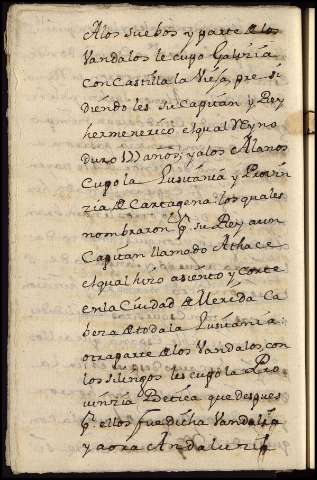 Alos suebos y parte de los
Vandalos le cupo Galizia
con Castilla la Vieja, presi
diendoles su Capitan y Rey
hermenerico el qual Reyno
duro 177 años; y alos Alanos
Cupo la Lusitania y Provin
zia de Cartagena: los quales
nombraron pr. su Rey a un
Capitan llamado Athace
el qual hizo asiento y corte
en la Ciudad de Merida Ca
beza de toda la Lusitania:
otra parte de los Vandalos, con
los silingos les cupo la Pro
vinzia Betica que despues
pr. ellos fue dicha Vandalia
y aora Andaluzia